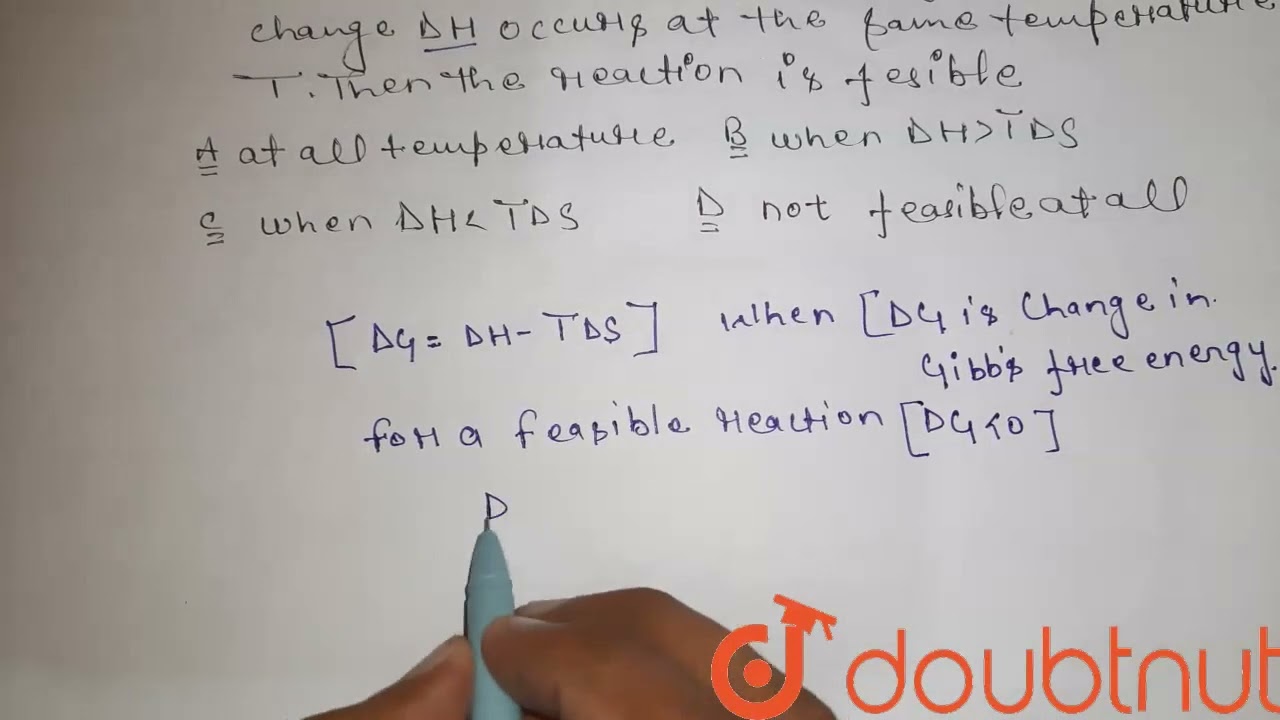 change DH occurs at the same temperature
T. Then the reaction is fesible
A at all temperature B when DH>TDS
C when DH< TDS D not feasible at all
[DG = DH - TDS] When [DG is Change in.
Gibb's free energy.
for a feasible reaction [DG<0]
D
doubtnut